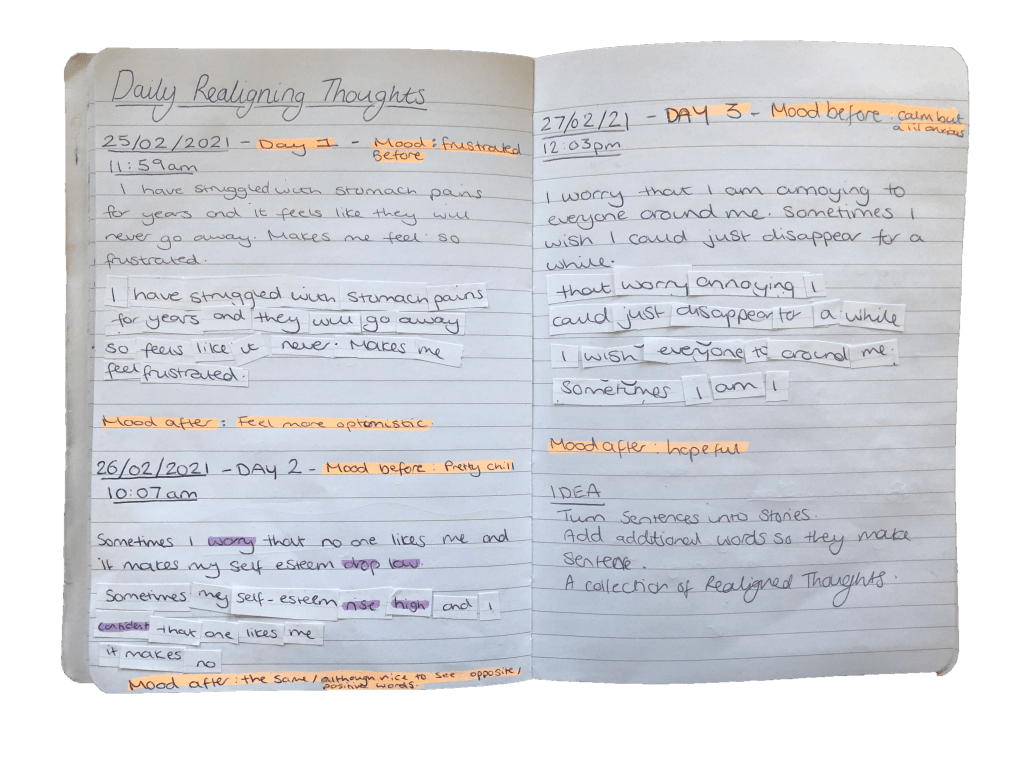 Daily Realigning Thoughts
25/02/2021 - Day 1 - Mood: frustrated
Before
11:59am
I have struggled with stomach pains
for years and it feels like they will
never go away. Makes me feel so
frustrated.
I have struggled with stomach pains
for years and they will go away
so feels like it never. Makes me
feel frustrated.
Mood after: Feel more optimistic.
26/02/2021 - DAY 2 - Mood before: Pretty chill
10:07am
Sometimes I worry that no one likes me and
it makes my self esteem drop low.
Sometimes my self-esteem rise high and I
confident that one likes me
it makes no
Mood after: the same/although nice to see opposite/
positive words.
27/02/21 - DAY 3 - Mood before: calm but
a lil anxious
12:03pm
I worry that I am annoying to
everyone around me. Sometimes I
wish I could just disappear for a
while.
that worry annoying I
could just disappear for a while
I wish everyone to around me.
Sometimes I am I
Mood after: hopeful
IDEA
Turn Sentences into Stories.
Add additional words so they make
Sentence.
A collection of Realigned Thoughts.